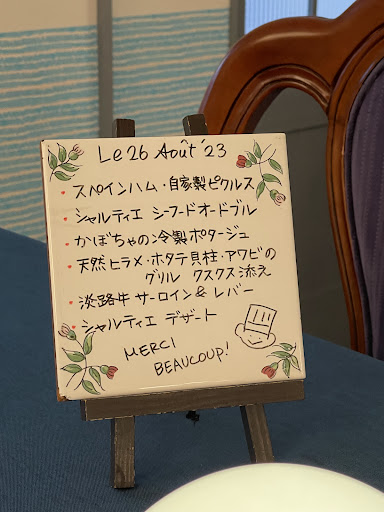 Le 26 Août '23
・スペインハム・自家製ピクルス
・シャルティエ シーフードオードブル
・かぼちゃの冷製ポタージュ
・天然ヒラメ・ホタテ貝柱・アワビの
グリル クスクス添え
・淡路牛サーロイン&レバー
・シャルティエ デザート
MERCI
BEAUCOUP!